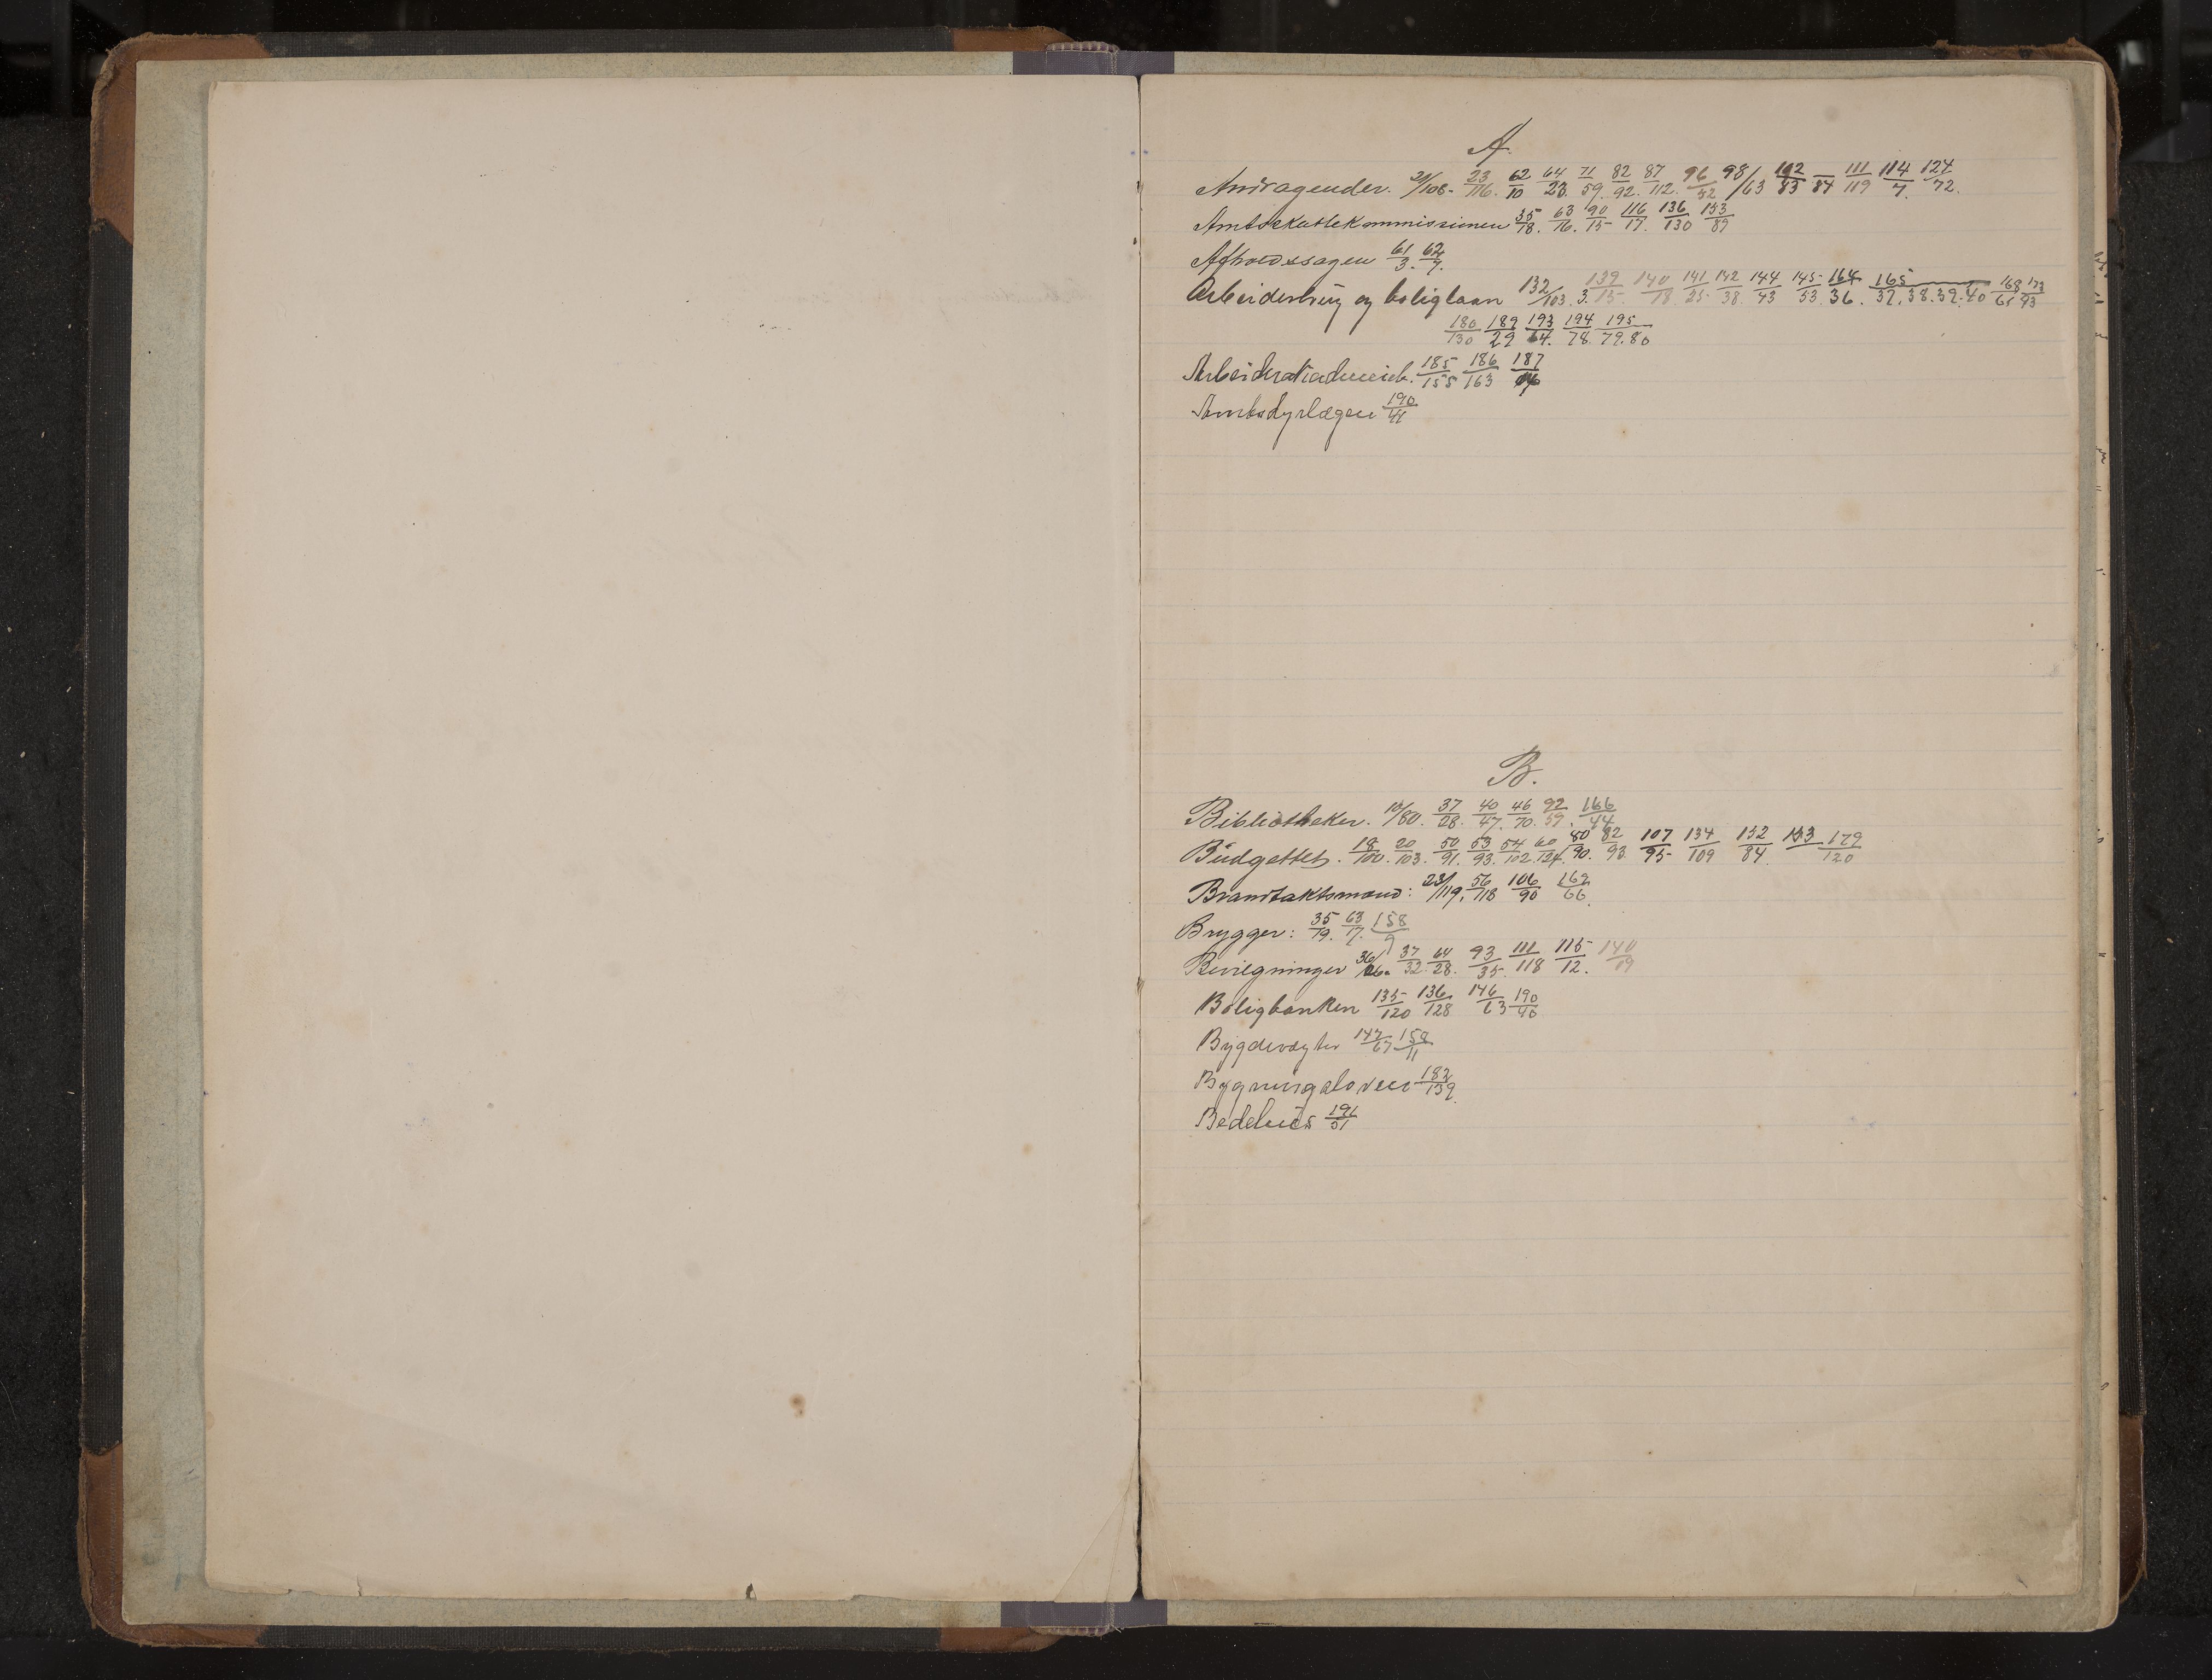 A.
Andragender. 21/108. 23/116. 62/10 64/23. 71/59. 82/92. 87/112. 96/52 98/63 102/83 — 84 111/119 114/7. 124/72.
Amtsskattekommissionen 35/18. 63/16. 90/15 116/17. 136/130 153/89
Afholdssagen 61/3. 62/7.
Arbeiderbrug og boliglaan 132/103. 3. 139/15. 140/18 141/25 142/38 144/43 145/53 164/36. 165/37. 38. 39. 40 168/61 173/93
180/130 189/29 193/64. 194/78. 195/79.80
185/155 186/163 187
Amtsdyrlægen 190/41
B.
Bibliotheker. 10/80. 37/28. 40/47. 46/70. 92/59. 166/44
Büdgettet. 18/100. 20/103. 50/91. 53/93. 54/102. 60/134. 80/90. 82/93. 107/95 134/109 152/84. 153 179/120
Brandtaktsmænd: 23/119. 56/118 106/90 169/66.
Brygger: 35/19. 63/17. 158/9
Bevilgninger 36/26. 37/32. 64/28. 93/35. 111/118 115/12. 140/19
Boligbanken 135/120 136/128 146/63 190/40
Bygdevægter 147/67 158/11
Bygningsloven 182/139.
Bedehüs 191/51